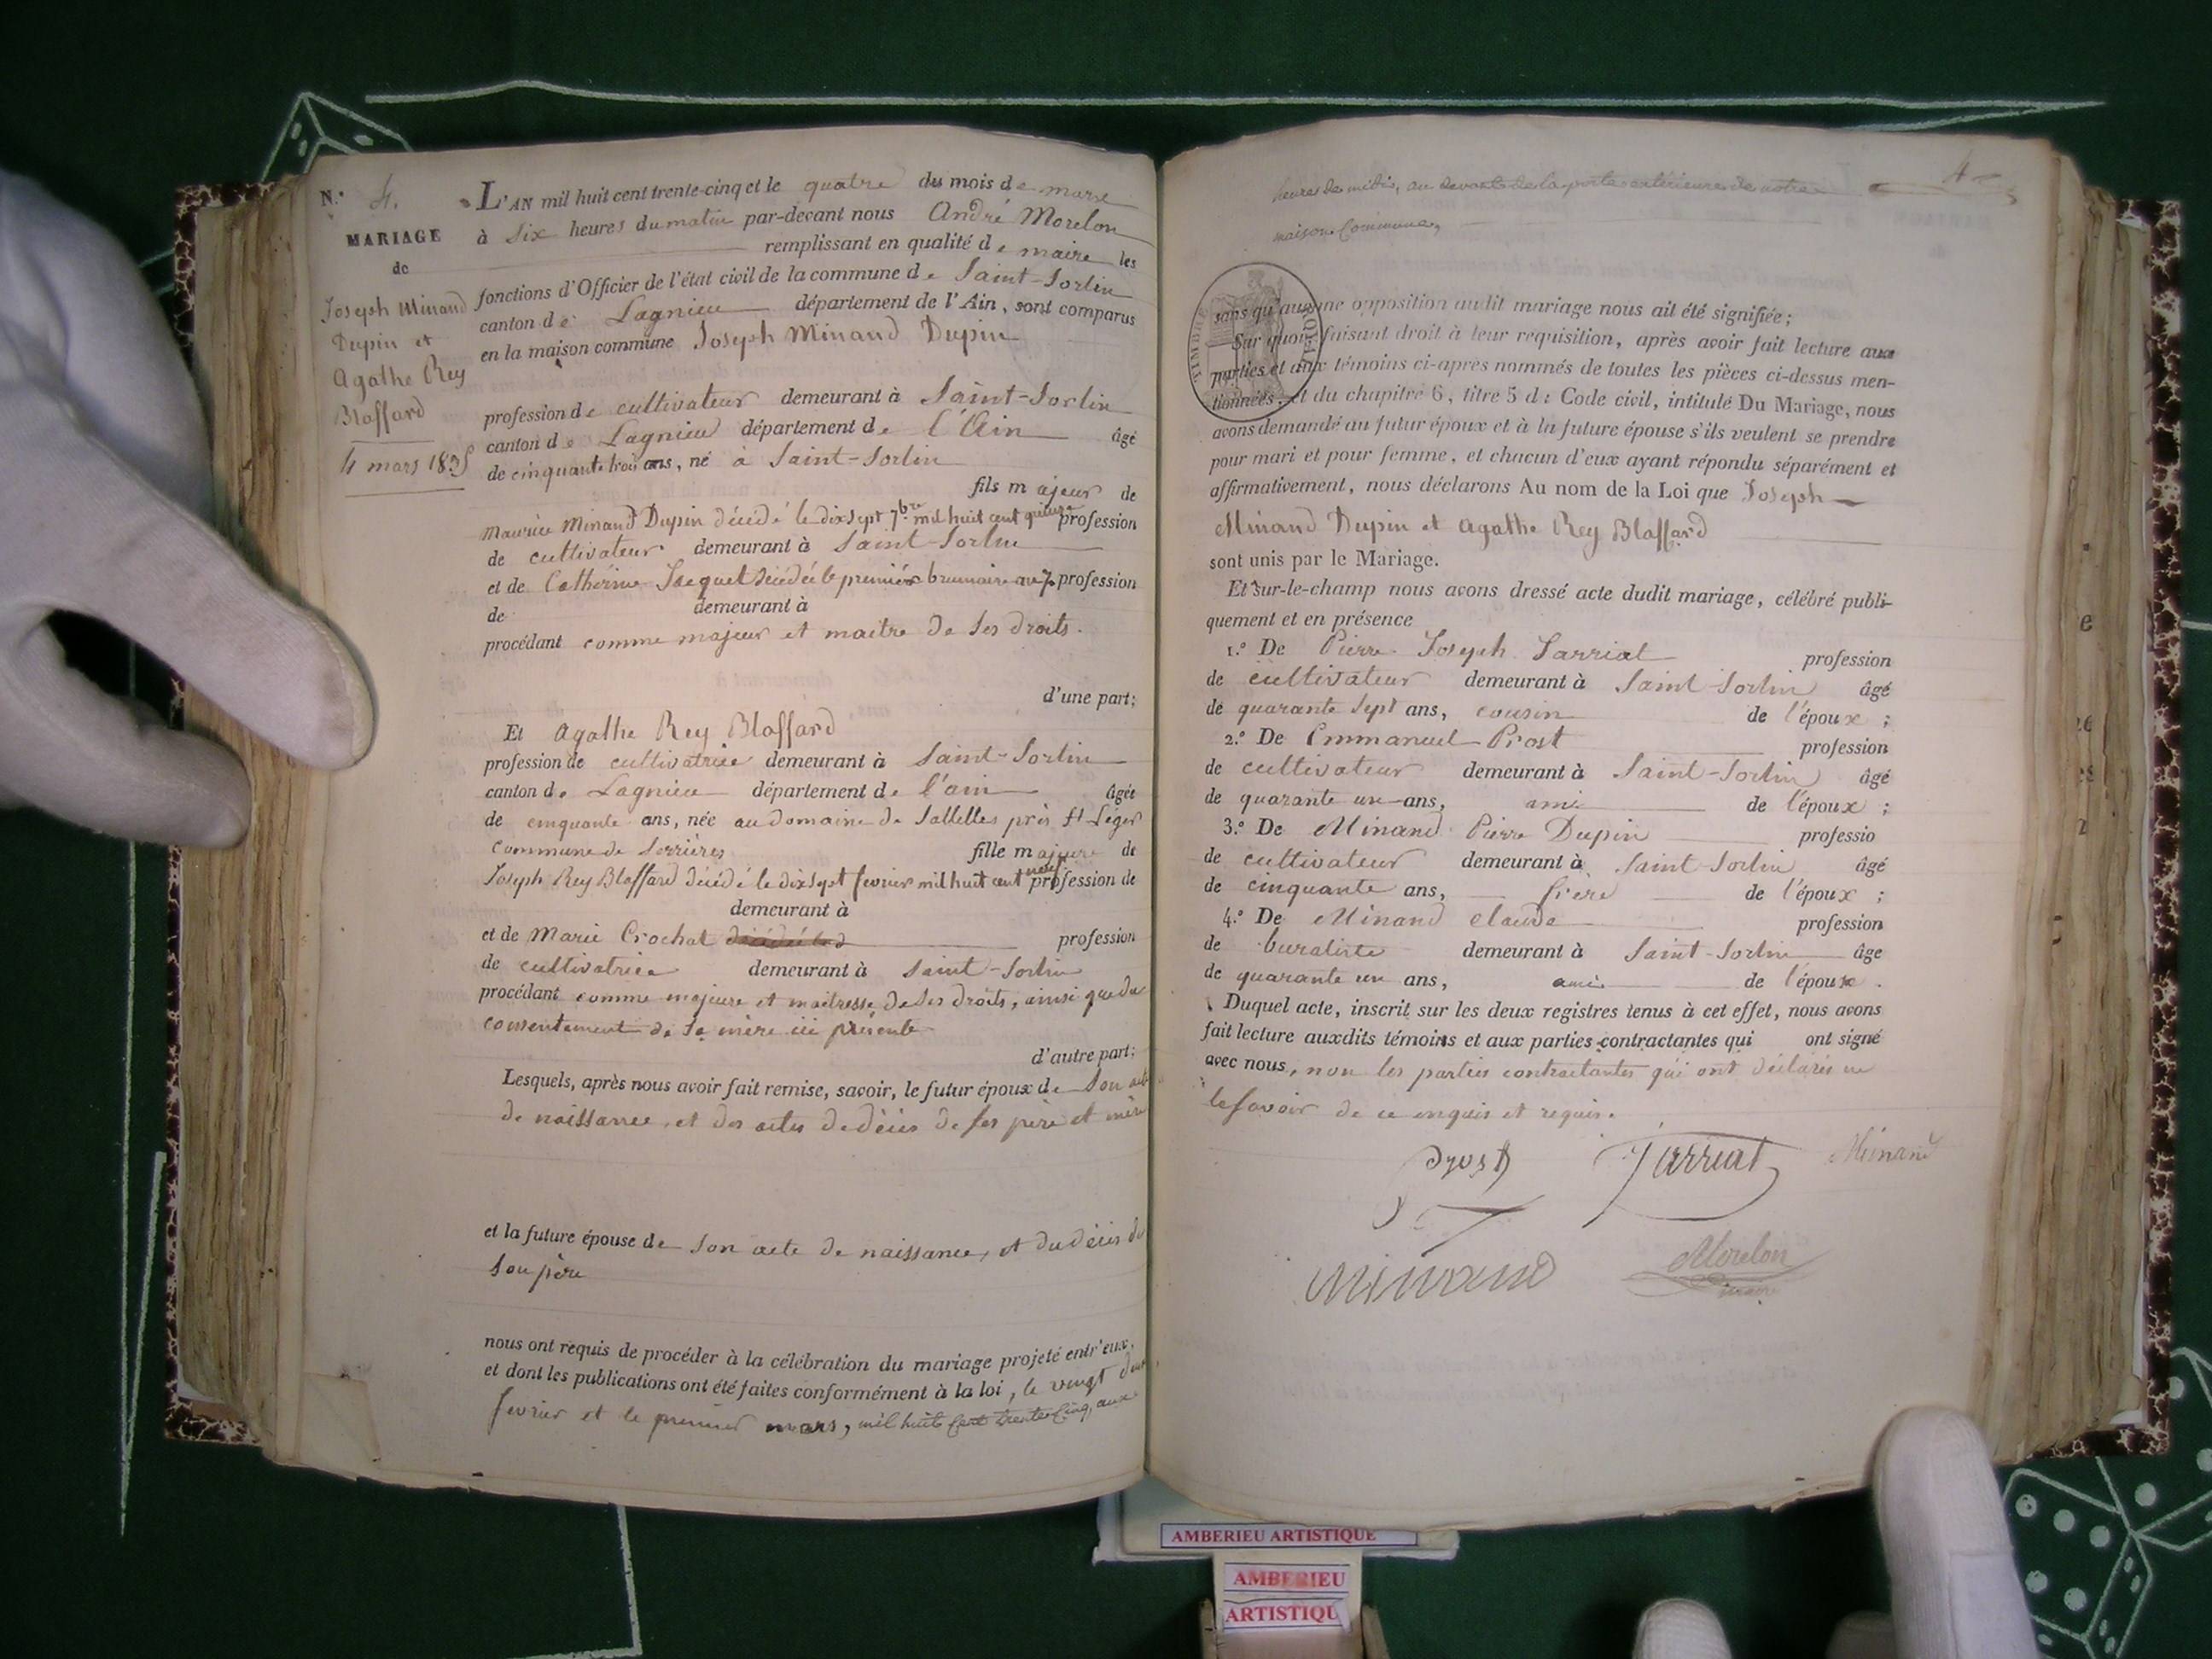 N.° 4.
MARIAGE
de
Joseph Minand
Dupin et
Agathe Rey
Blaffard
4 mars 1835
L'AN mil huit cent trente-cinq et le quatre du mois de mars
à six heures du matin par-devant nous André Morelon
remplissant en qualité de maire les
fonctions d'Officier de l'état civil de la commune de Saint-Sorlin
canton de Lagnieu département de l'Ain, sont comparus
en la maison commune Joseph Minand Dupin
profession de cultivateur demeurant à Saint-Sorlin
canton de Lagnieu département de l'Ain âgé
de cinquante trois ans, né à Saint-Sorlin
fils majeur de
Maurice Minand Dupin décédé le dix sept 7bre mil huit cent quinze profession
de cultivateur demeurant à Saint-Sorlin
et de Catherine Jacquet décédée le premier brumaire an 7 profession
de demeurant à
procédant comme majeur et maitre de ses droits.
d'une part;
Et Agathe Rey Blaffard
profession de cultivatrice demeurant à Saint-Sorlin
canton de Lagnieu département de l'ain âgée
de cinquante ans, née au domaine de Sallelles près St Léger
commune de Serrières fille majeure de
Joseph Rey Blaffard décédé le dix sept fevrier mil huit cent neuf profession de
demeurant à
et de Marie Crochat profession
de cultivatrice demeurant à Saint-Sorlin
procédant comme majeure et maitresse de ses droits, ainsi que du
consentement de sa mère ici présente
d'autre part;
Lesquels, après nous avoir fait remise, savoir, le futur époux de son acte
de naissance, et des actes de décès de ses père et mère
et la future épouse de son acte de naissance, et du décès de
son père
nous ont requis de procéder à la célébration du mariage projeté entr'eux,
et dont les publications ont été faites conformément à la loi, le vingt deux
fevrier et le premier mars, mil huit cent trente cinq, aux
4
heures de midi, au devant de la porte extérieure de notre
maison Commune,
TIMBRE ROYAL
sans qu'aucune opposition audit mariage nous ait été signifiée;
Sur quoi, faisant droit à leur requisition, après avoir fait lecture aux
parties et aux témoins ci-après nommés de toutes les pièces ci-dessus men-
tionnées, et du chapitre 6, titre 5 d: Code civil, intitulé Du Mariage, nous
avons demandé au futur époux et à la future épouse s'ils veulent se prendre
pour mari et pour femme, et chacun d'eux ayant répondu séparément et
affirmativement, nous déclarons Au nom de la Loi que Joseph
Minand Dupin et Agathe Rey Blaffard
sont unis par le Mariage.
Et sur-le-champ nous avons dressé acte dudit mariage, célébré publi-
quement et en présence
1.° De Pierre Joseph Jarriat profession
de cultivateur demeurant à Saint-Sorlin âgé
de quarante sept ans, cousin de l'époux;
2.° De Emmanuel Prost profession
de cultivateur demeurant à Saint-Sorlin âgé
de quarante un ans, ami de l'époux;
3.° De Minand Pierre Dupin professio
de cultivateur demeurant à Saint-Sorlin âgé
de cinquante ans, frère de l'époux;
4.° De Minand Claude profession
de buraliste demeurant à Saint-Sorlin âgé
de quarante un ans, ami de l'époux.
Duquel acte, inscrit sur les deux registres tenus à cet effet, nous avons
fait lecture auxdits témoins et aux parties contractantes qui ont signé
avec nous, non les parties contractantes qui ont déclaré ne
le savoir de ce enquis et requis.
Prost
Jarriat
Minand
Minand
Morelon
maire
AMBERIEU ARTISTIQUE
AMBERIEU
ARTISTIQU